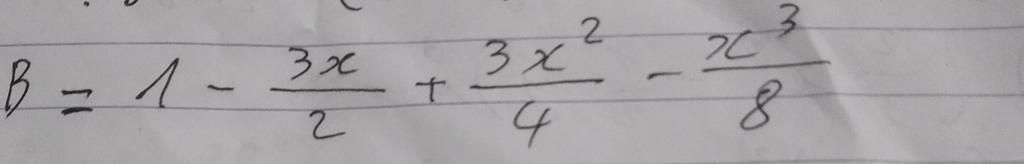 B = 1 - \frac{3x}{2} + \frac{3x^2}{4} - \frac{x^3}{8}